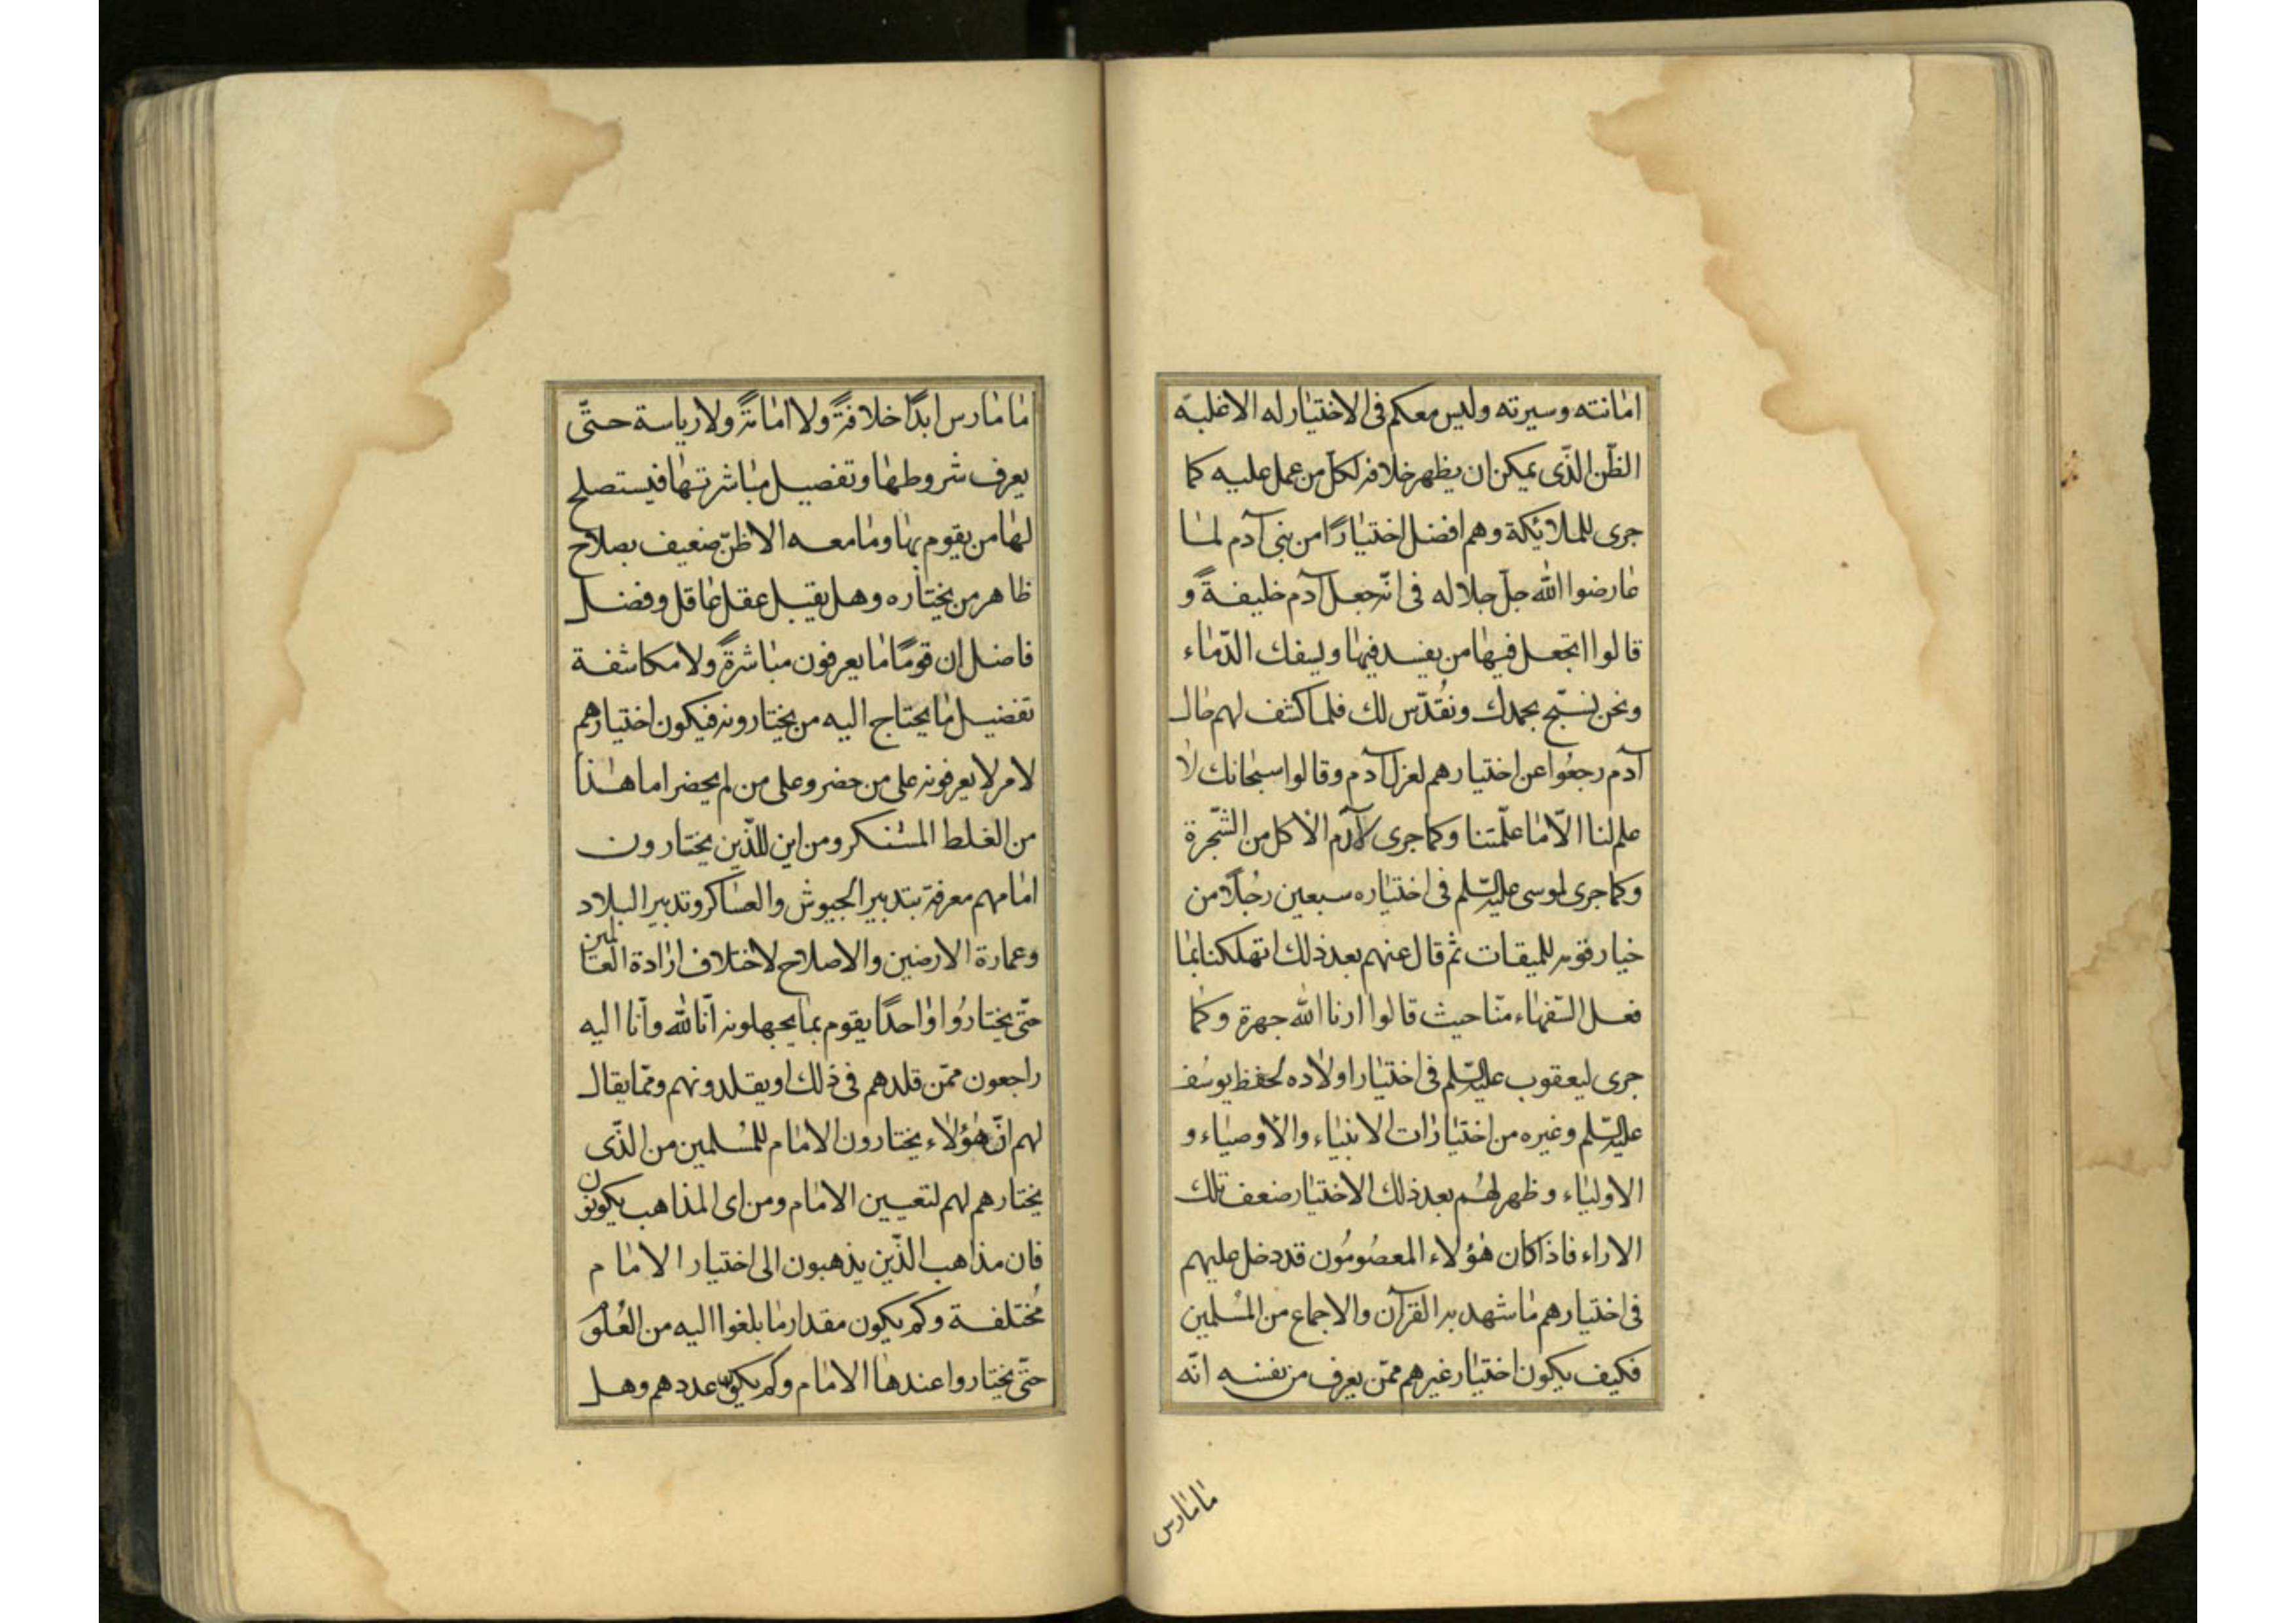 امانته وسيرته وليس معكم فى الاختيار له الا غلبة
الظّن الذّى يمكن ان يظهر خلافه لكل من عمل عليه كما
جرى للملائكة وهم افضل اختيارًا من بنى آدم لما
عارضوا الله جلّ جلاله فى انّه جعل آدم خليفةً و
قالوا اتجعل فيها من يفسد فيها ويسفك الدّماء
ونحن نسبّح بحمدك ونُقدّس لك فلما كشف لهم حال
آدم رجعُوا عن اختيارهم لعزل آدم وقالوا سبحانك لا
علم لنا الّا ما علّمتنا وكما جرى لآدم الاكل من الشّجرة
وكما جرى لموسى عليه السّلم فى اختياره سبعين رجُلًا من
خيار قومه للميقات ثم قال عنهم بعد ذلك اتهلكنا بما
فعل السّفهاء منّا حيث قالوا ارنا الله جهرة وكما
جرى ليعقوب عليه السّلم فى اختيار اولاده لحفظ يوسُف
عليه السّلم وغيره من اختيارات الانبياء والاوصياء و
الاولياء وظهر لهُم بعد ذلك الاختيار ضعف تلك
الاراء فاذا كان هؤلاء المعصُومُون قد دخل عليهم
فى اختيارهم ما شهد به القرآن والاجماع من المُسلمين
فكيف يكون اختيار غيرهم ممّن يعرف من نفسه انّه
ما مارس
ما مارس ابدًا خلافةً ولا امانةً ولا رياسة حتّى
يعرف شروطها وتفصيل مباشرتها فيستصلح
لها من يقوم بها وما معه الا ظنّ ضعيف بصلاح
ظاهر من يختاره وهل يقبل عقل عاقل وفضل
فاضل ان قومًا ما يعرفون مباشرةً ولا مكاشفة
تفضيل ما يحتاج اليه من يختارونه فيكون اختيارهم
لامر لا يعرفونه على من حضر وعلى من لم يحضر اما هذا
من الغلط المستنكر ومن اين للذّين يختارون
امامهم معرفة بتدبير الجيوش والعساكر وتدبير البلاد
وعمارة الارضين والاصلاح لاختلاف ارادة العالمين
حتّى يختارُوا واحدًا يقوم بما يجهلونه انّا لله وانّا اليه
راجعون ممّن قلدهم فى ذلك او يقلدونهم وممّا يقال
لهم انّ هؤلاء يختارون الامام للمُسلمين من الذّى
يختارهم لهم لتعيين الامام ومن اى المذاهب يكونون
فان مذاهب الذّين يذهبون الى اختيار الامام
مُختلفة وكم يكون مقدار ما بلغوا اليه من العُلوم
حتّى يختاروا عندها الامام وكم يكون عددهم وهل